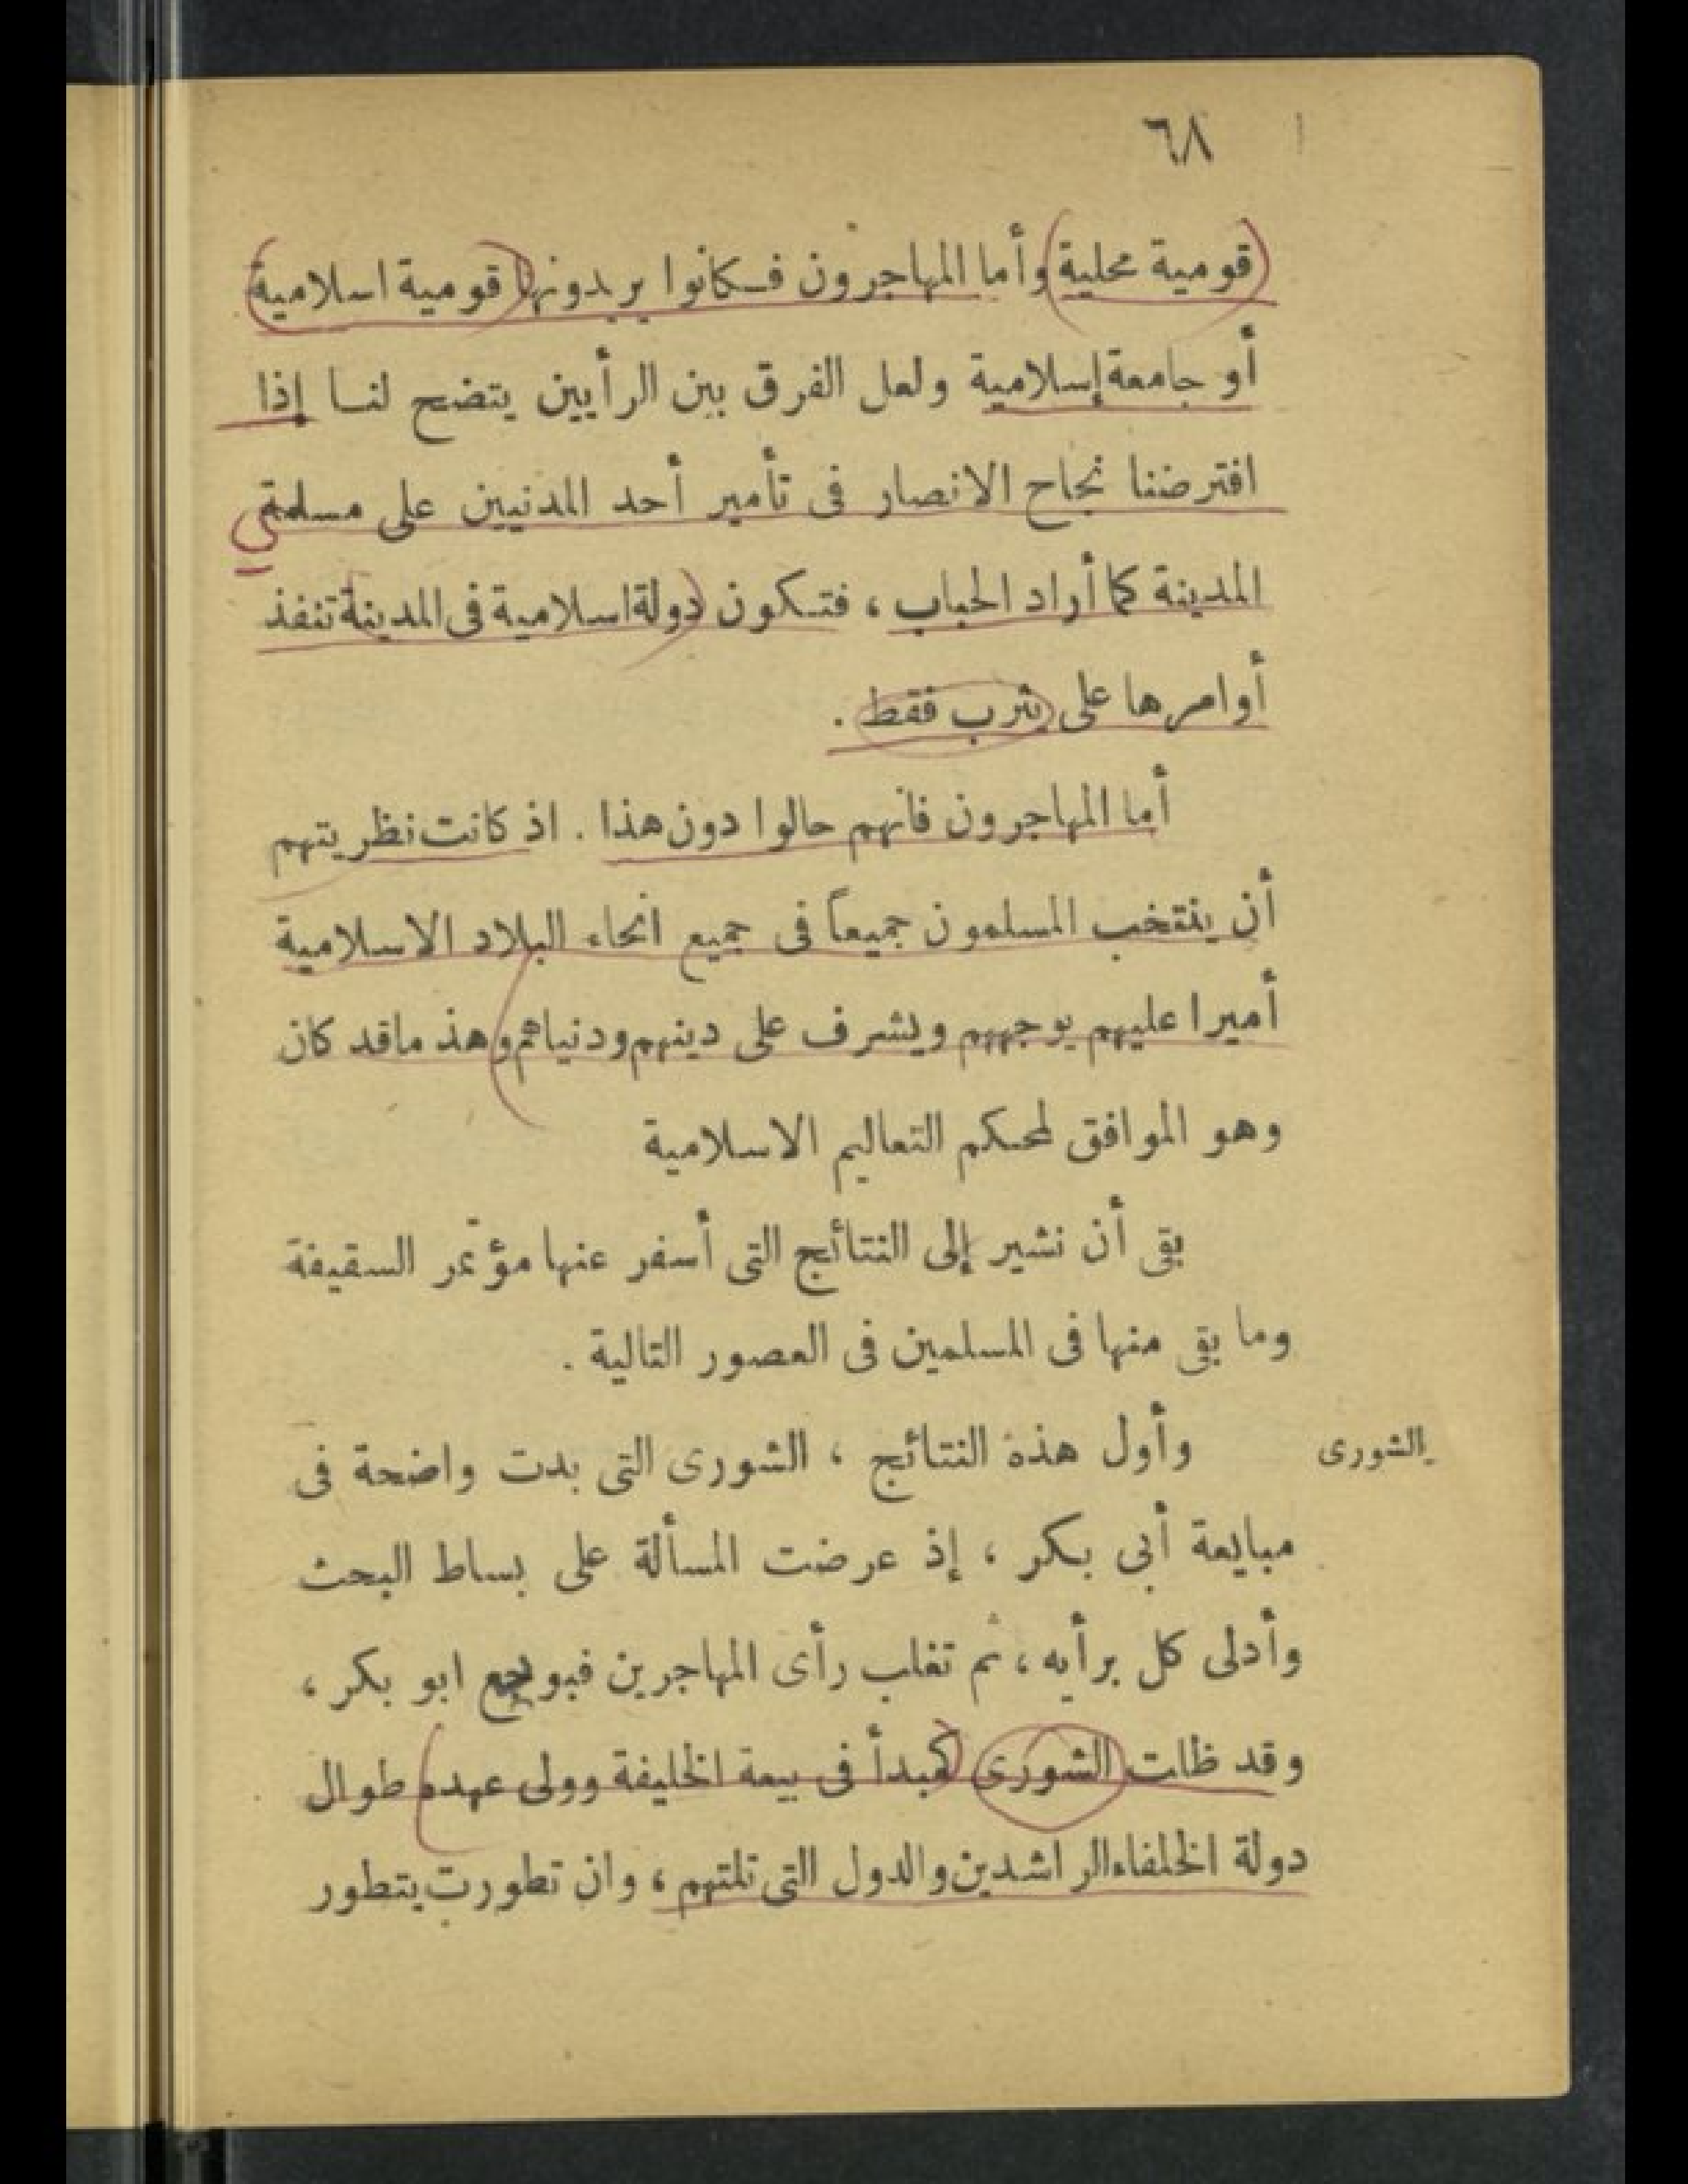 ٦٨
(قومية محلية) وأما المهاجرون فكانوا يريدونها (قومية اسلامية)
أو جامعة إسلامية ولعل الفرق بين الرأيين يتضح لنا إذا
افترضنا نجاح الانصار فى تأمير أحد المدنيين على مسلمتى
المدينة كما أراد الحباب ، فتكون (دولة اسلامية فى المدينة تنفذ
أوامرها على يثرب فقط .
أما المهاجرون فانهم حالوا دون هذا . اذ كانت نظريتهم
أن ينتخب المسلمون جميعاً فى جميع انحاء البلاد الاسلامية
أميرا عليهم يوجههم ويشرف على دينهم ودنياهم وهذ ماقد كان
وهو الموافق لمحكم التعاليم الاسلامية
بقى أن نشير إلى النتائج التى أسفر عنها مؤتمر السقيفة
وما بقى منها فى المسلمين فى العصور التالية .
الشورى
وأول هذه النتائج ، الشورى التى بدت واضحة فى
مبايعة أبى بكر ، إذ عرضت المسألة على بساط البحث
وأدلى كل برأيه ، ثم تغلب رأى المهاجرين فبويع ابو بكر ،
وقد ظلت الشورى (كمبدأ فى بيعة الخليفة وولى عهده) طوال
دولة الخلفاء الراشدين والدول التى تلتهم ، وان تطورت بتطور